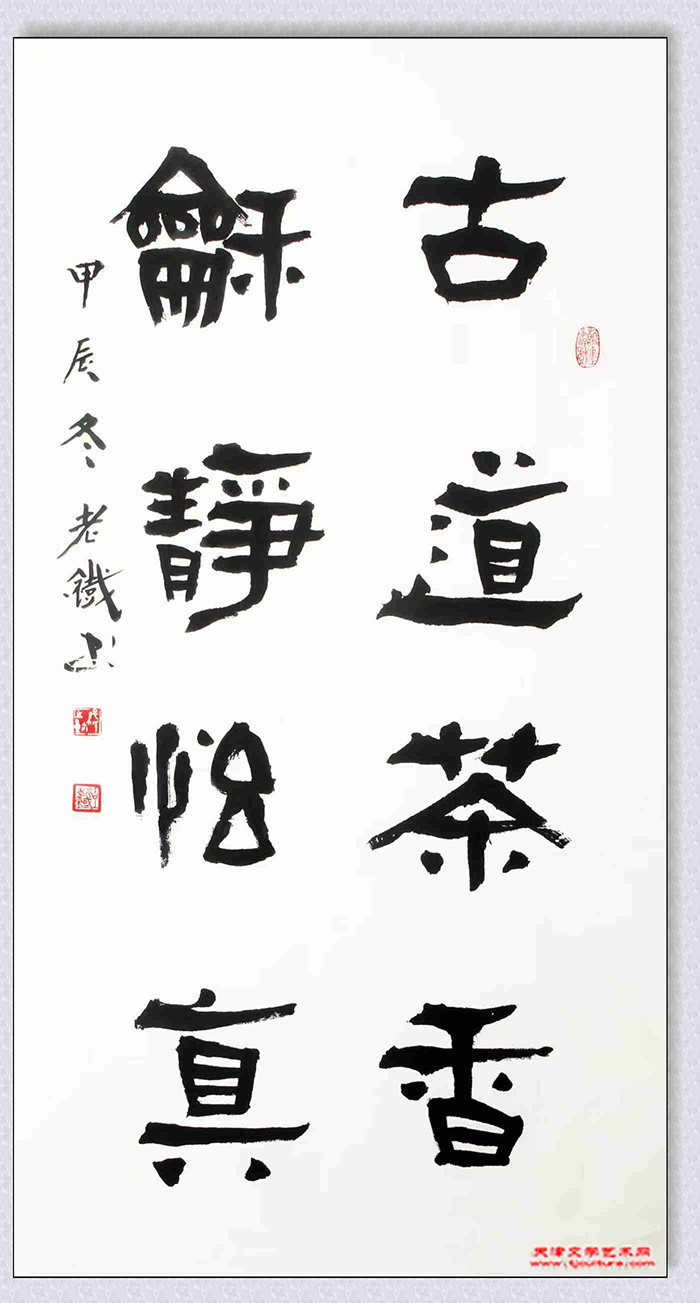 古道茶香
龢靜怡真
甲辰冬老鐵
天津文学艺术网
www.tjculture.com